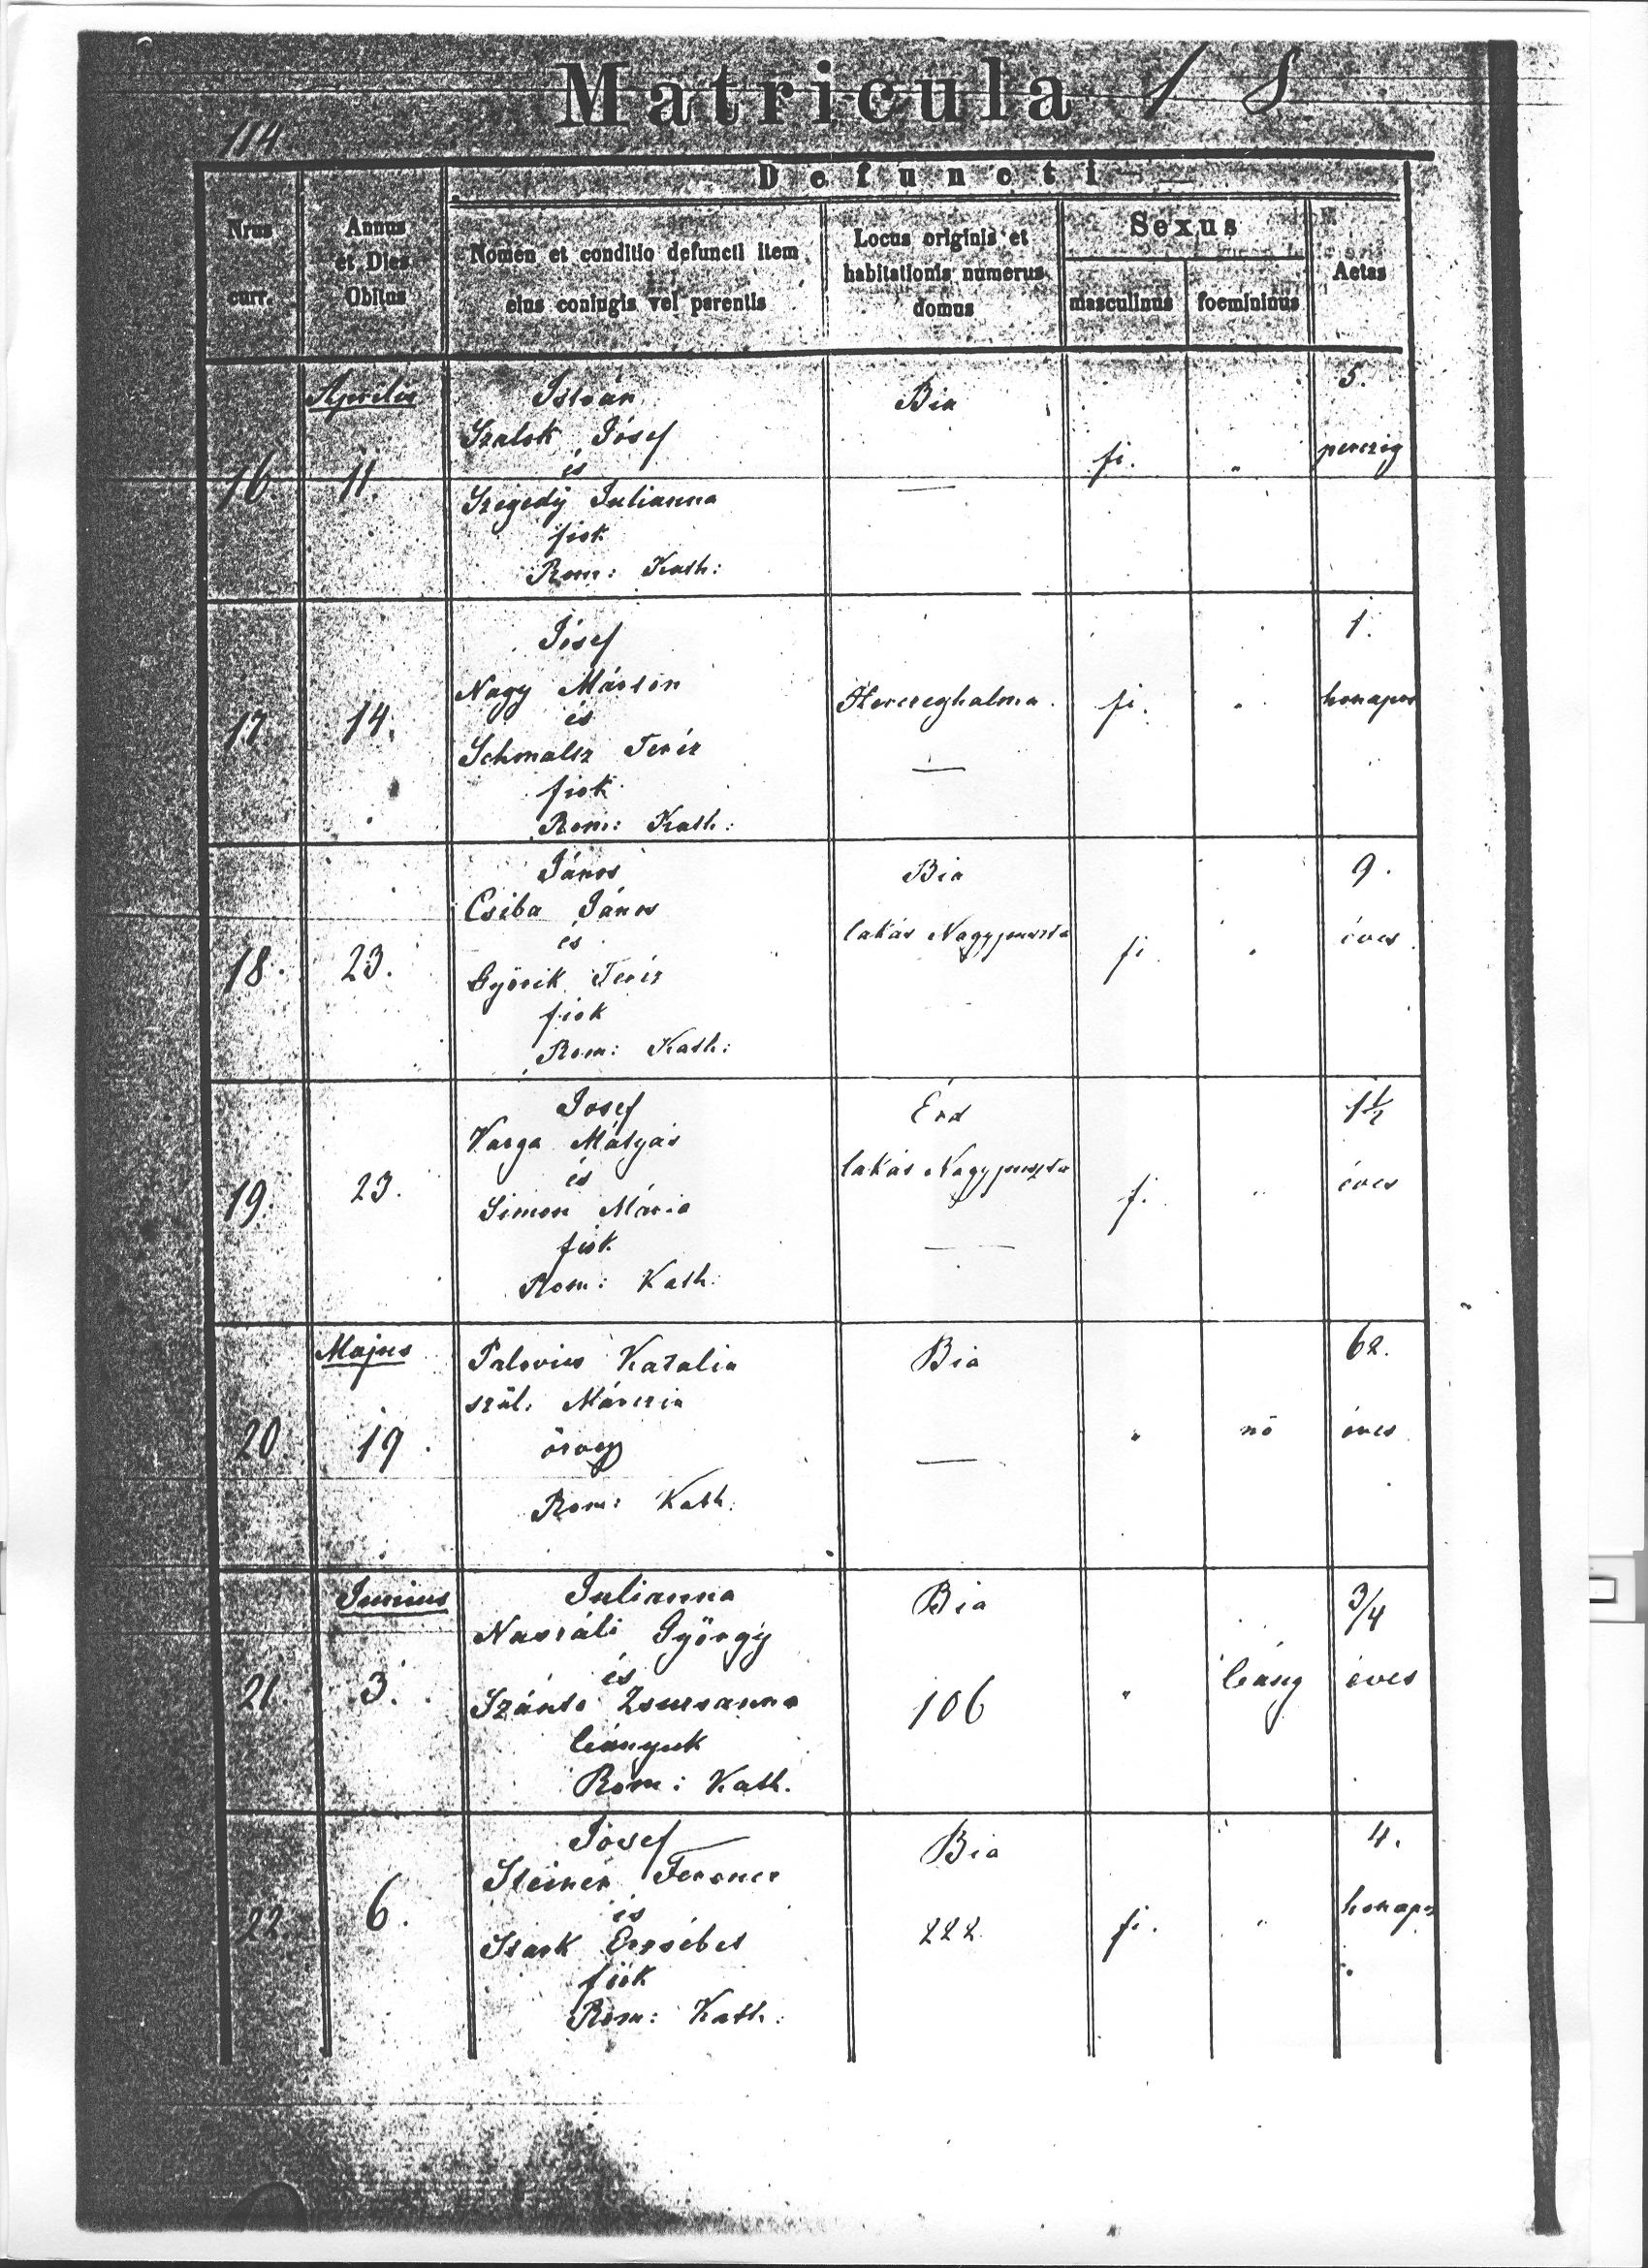 Matricula 1 8
114
Defuncti
Nrus
curr.
Annus
et Dies
Obitus
Nomen et conditio defuncti item
eius coniugis vel parentis
Locus originis et
habitationis numerus
domus
Sexus
masculinus
foemininus
Aetas
Aprilis
16
11
István
Szalok Jósef
és
Szegedÿ Julianna
fiok
Rom: Kath:
Bia
—
fi.
"
5.
perczig
17
14.
Jósef
Nagy Márton
és
Schmalcz Teréz
fiok
Rom: Kath:
Herczeghalma.
—
fi.
"
1.
honapos
18.
23.
János
Csiba János
és
Györik Teréz
fiok
Rom: Kath:
Bia
lakás Nagypuszta
fi
"
9.
éves
19.
23.
Josef
Varga Mátyás
és
Simon Mária
fiok
Rom: Kath.
Érd
lakás Nagypuszta
—
fi.
"
1 1/2
éves
Majus
20
19.
Palovics Katalin
szül.
özvegy
Rom: Kath.
Bia
—
"
nő
62.
éves
Junius
21
3.
Julianna
György
és
Szántó Zsuzsanna
leányuk
Rom: Kath.
Bia
106
"
leány
3/4
éves
22.
6.
Jósef
Steiner Ferencz
és
Stark Erzsébet
fiok
Rom: Kath:
Bia
222.
fi.
"
4.
honapos